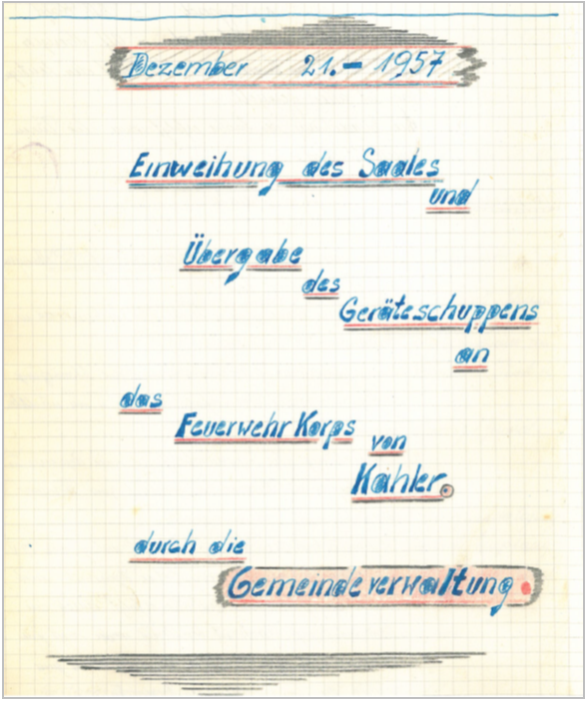 Dezember 21.- 1957
Einweihung des Saales
und
Übergabe
des
Geräteschuppens
an
das
Feuerwehr Korps von
Kahler.
durch die
Gemeindeverwaltung.